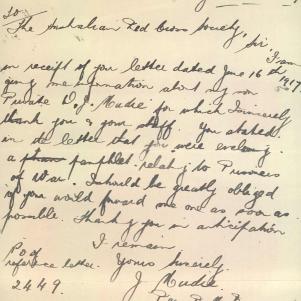 To
The Australian Red Cross Society, Sir, I am
in receipt of you letter dated June 16th 1917
giving me information about my son
Private D. J. Mudie for which I sincerely
thank you & your staff. You stated
in the letter that you were enclosing
a pamphlet relating to Prisoners
of War. I should be greatly obliged
if you would forward me one as soon as
possible. Thanking you in anticipation
I remain
Yours sincerely
P O of
reference letter.
2449.
J Mudie